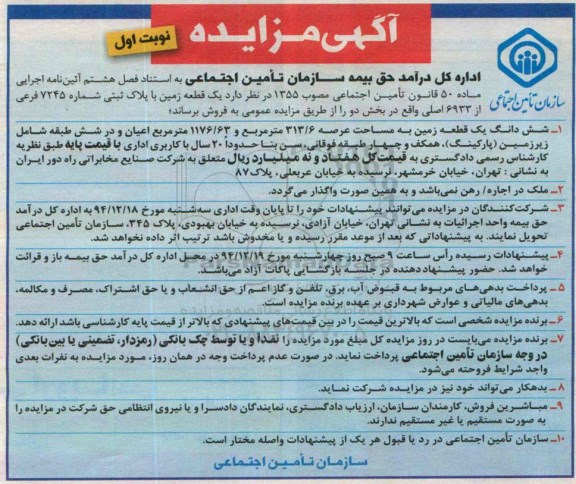 آگهی مزایده
نوبت اول
سازمان تأمین اجتماعی
اداره کل درآمد حق بیمه سازمان تأمین اجتماعی به استناد فصل هشتم آئین‌نامه اجرایی
ماده ۵۰ قانون تأمین اجتماعی مصوب ۱۳۵۵ در نظر دارد یک قطعه زمین با پلاک ثبتی شماره ۷۲۴۵ فرعی
از ۶۹۳۳ اصلی واقع در بخش دو را از طریق مزایده عمومی به فروش برساند؛
۱ـ شش دانگ یک قطعه زمین به مساحت عرصه ۳۱۳/۶ مترمربع و ۱۱۷۶/۶۳ مترمربع اعیان و در شش طبقه شامل
زیرزمین (پارکینگ)، همکف و چهار طبقه فوقانی، سن بنا حدوداً ۲۰ سال با کاربری اداری با قیمت پایه طبق نظریه
کارشناس رسمی دادگستری به قیمت کل هفتاد و نه میلیارد ریال متعلق به شرکت صنایع مخابراتی راه دور ایران
به نشانی : تهران، خیابان خرمشهر، نرسیده به خیابان عربعلی، پلاک ۸۷
۲ـ ملک در اجاره/ رهن نمی‌باشد و به همین صورت واگذار می‌گردد.
۳ـ شرکت‌کنندگان در مزایده می‌توانند پیشنهادات خود را تا پایان وقت اداری سه‌شنبه مورخ ۹۴/۱۲/۱۸ به اداره کل درآمد
حق بیمه واحد اجرائیات به نشانی تهران، خیابان آزادی، نرسیده به خیابان بهبودی، پلاک ۳۴۵، سازمان تأمین اجتماعی
تحویل نمایند. به پیشنهاداتی که بعد از موعد مقرر رسیده و یا مخدوش باشد ترتیب اثر داده نخواهد شد.
۴ـ پیشنهادات رسیده رأس ساعت ۹ صبح روز چهارشنبه مورخ ۹۴/۱۲/۱۹ در محل اداره کل درآمد حق بیمه باز و قرائت
خواهد شد. حضور پیشنهاددهنده در جلسه بازگشایی پاکات آزاد می‌باشد.
۵ـ پرداخت بدهی‌های مربوط به قبوض آب، برق، تلفن و گاز اعم از حق انشعاب و یا حق اشتراک، مصرف و مکالمه،
بدهی‌های مالیاتی و عوارض شهرداری بر عهده برنده مزایده است.
۶ـ برنده مزایده شخصی است که بالاترین قیمت را در بین قیمت‌های پیشنهادی که بالاتر از قیمت پایه کارشناسی باشد ارائه دهد.
۷ـ برنده مزایده می‌بایست در روز مزایده کل مبلغ مورد مزایده را نقداً و یا توسط چک بانکی (رمزدار، تضمینی یا بین بانکی)
در وجه سازمان تأمین اجتماعی پرداخت نماید. در صورت عدم پرداخت وجه در همان روز، مورد مزایده به نفرات بعدی
واجد شرایط فروخته می‌شود.
۸ـ بدهکار می‌تواند خود نیز در مزایده شرکت نماید.
۹ـ مباشرین فروش، کارمندان سازمان، ارزیاب دادگستری، نمایندگان دادسرا و یا نیروی انتظامی حق شرکت در مزایده را
به صورت مستقیم یا غیر مستقیم ندارند.
۱۰ـ سازمان تأمین اجتماعی در رد یا قبول هر یک از پیشنهادات واصله مختار است.
سازمان تأمین اجتماعی